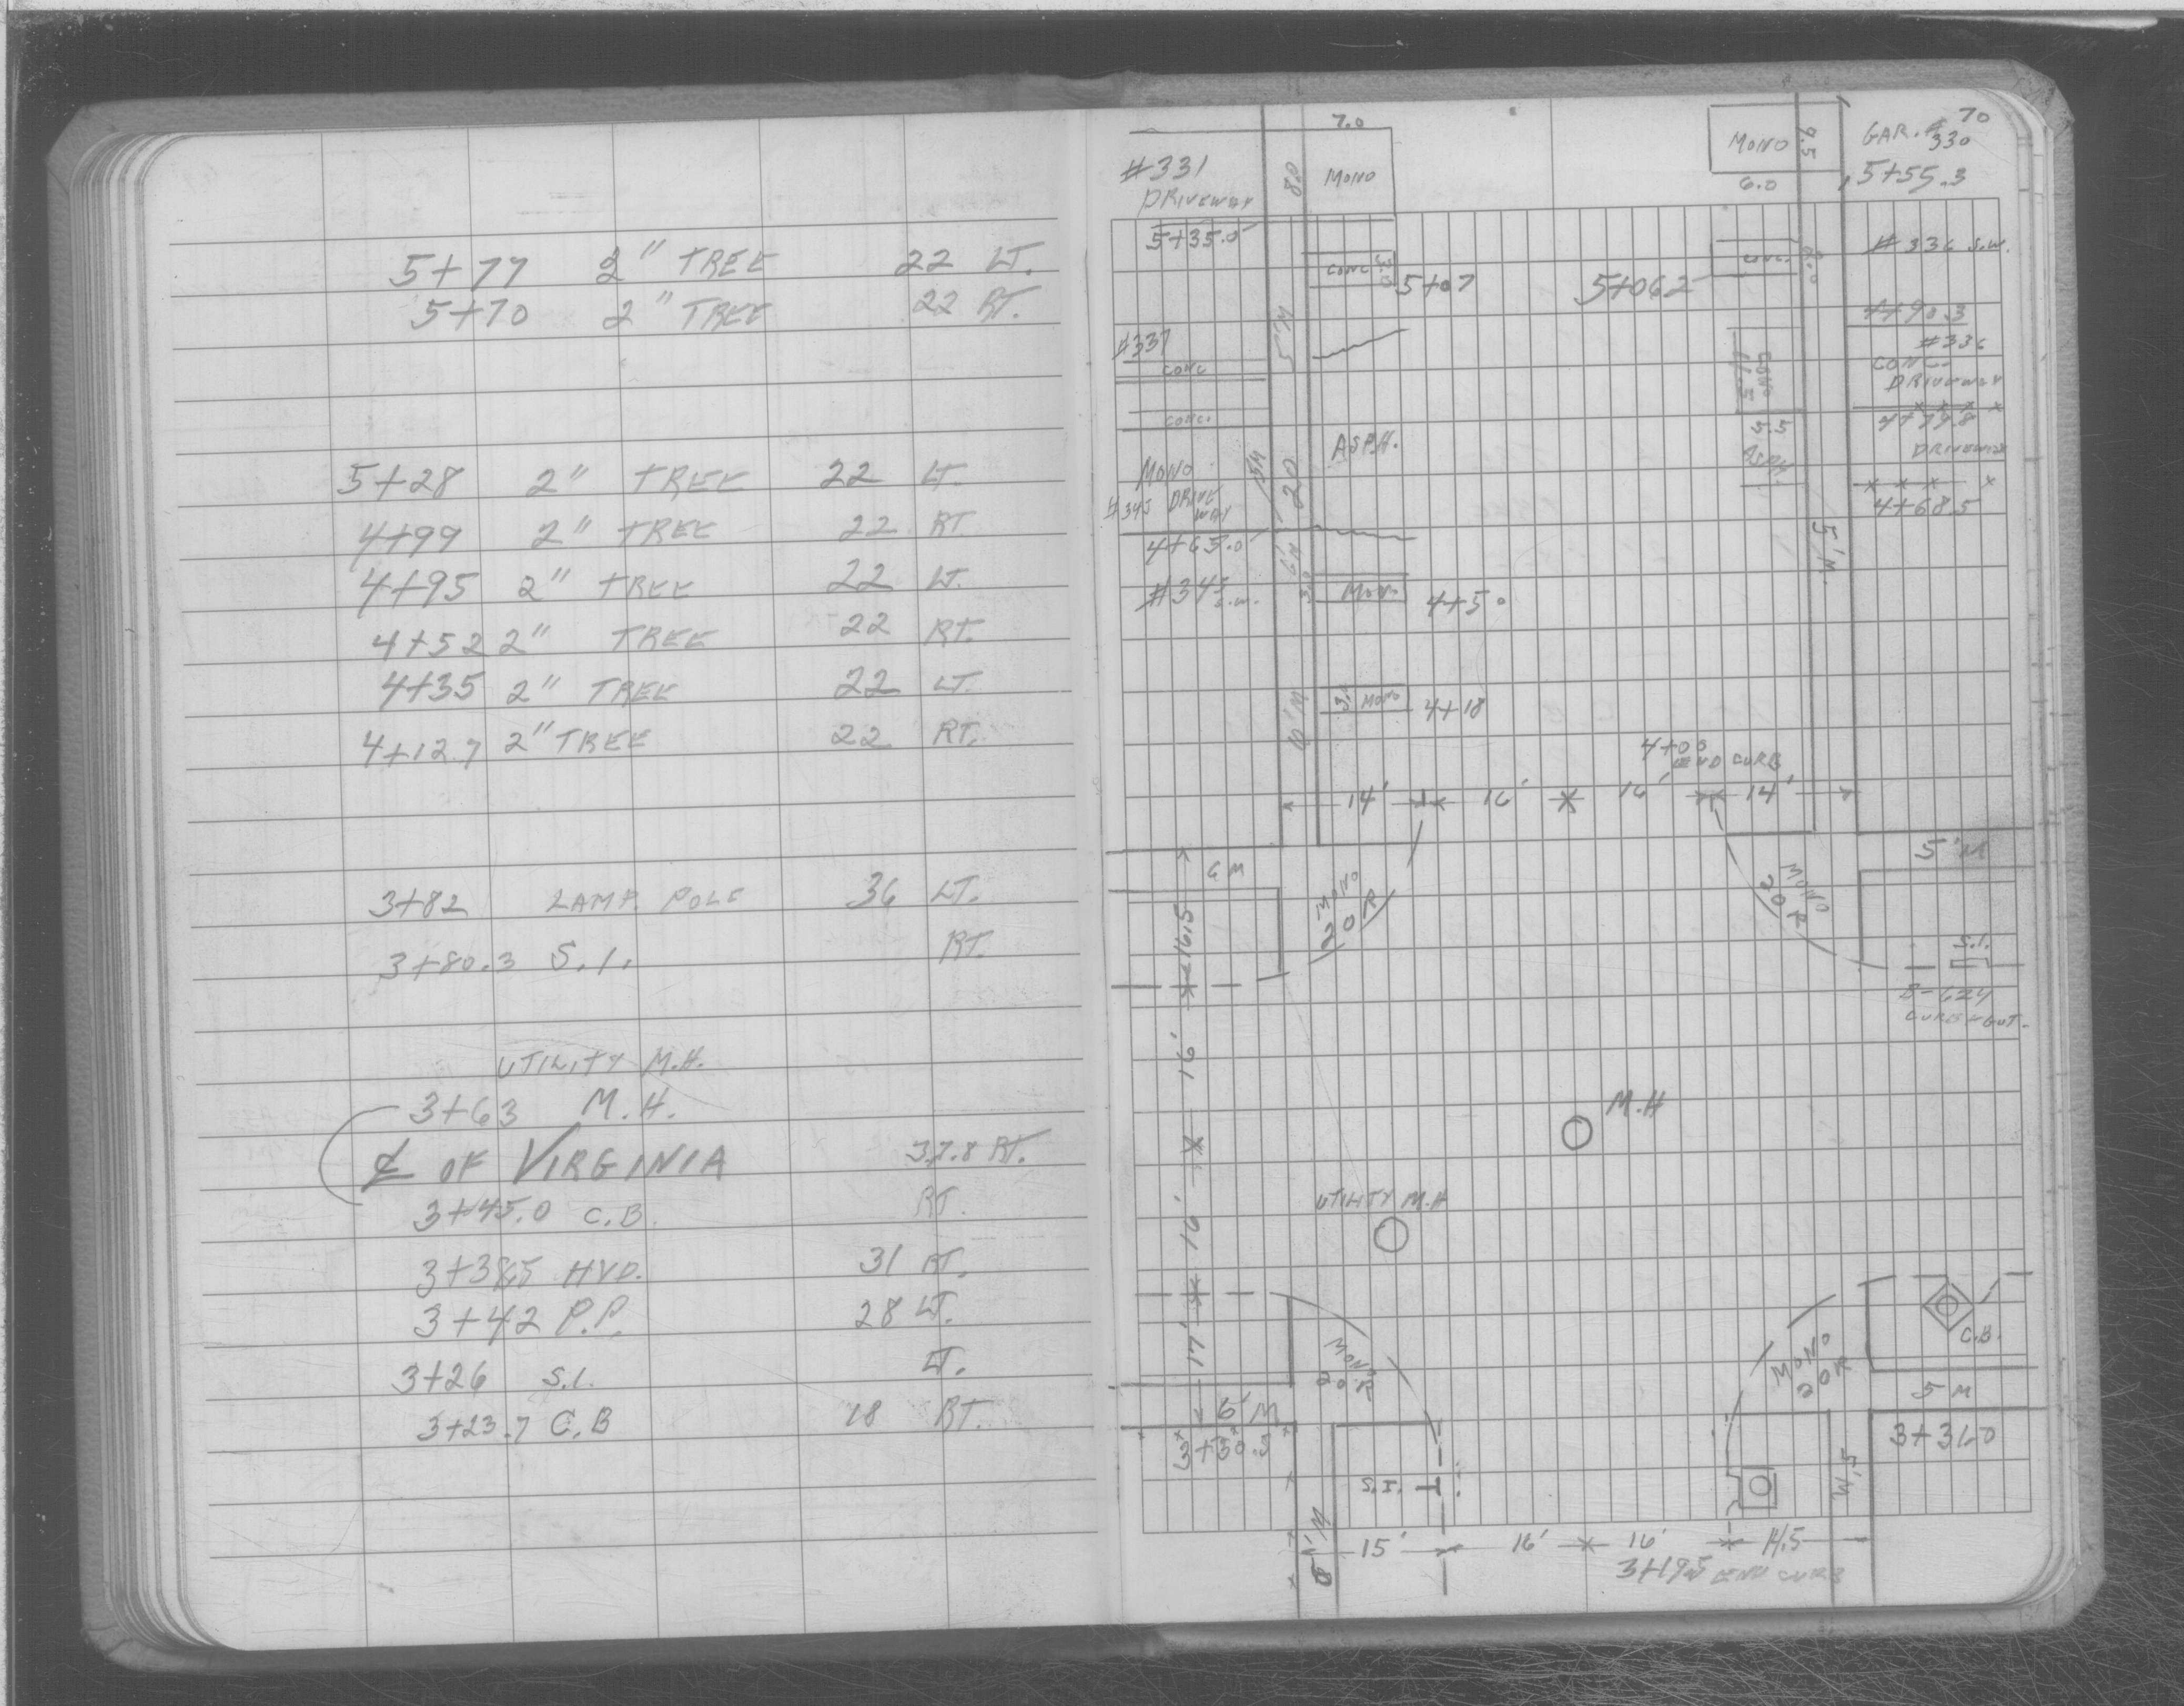 5+77 2" TREE 22 LT.
5+70 2" TREE 22 RT.
5+28 2" TREE 22 LT.
4+99 2" TREE 22 RT
4+95 2" TREE 22 LT.
4+52 2" TREE 22 RT.
4+35 2" TREE 22 LT.
4+12.7 2" TREE 22 RT.
3+82 LAMP. POLE 36 LT.
3+80.3 S.I. RT.
UTILITY M.H.
3+63 M.H.
℄ OF VIRGINIA 37.8 RT.
3+45.0 C.B. RT.
3+38.5 HYD. 31 RT.
3+42 P.P. 28 LT.
3+26 S.I. LT.
3+23.7 C.B 18 RT.
70
7.0
#331
DRIVEWAY
5+35.0
8.0
MONO
MONO
9.5
6.0
GAR. #
330
5+55.3
CONC
3.0
5+07
5+062
CONC.
#336 S.W.
#337
CONC
CONC.
5'M
4+90.3
#336
CONC
DRIVEWAY
4+79.8
DRIVEWAY
4+68.5
5.5
ASPH.
ASPH.
MONO
#345 DRIVE
WAY
4+65.0
20
5'M.
S.W.
MONO
4+50
MONO
4+18
4+00
END CURB
14' 16' 16' 14'
6 M
MONO
20 R
MONO
20 R
5'M
16.5
S.I.
B-624
CURB & GUT.
16'
M.H
16'
UTILITY M.H
17'
MONO
20 R
MONO
20 R
C.B.
6' M
5 M
3+30.5
3+31.0
S.I.
15' 16' 16' 14.5
3+19.5 END CURB